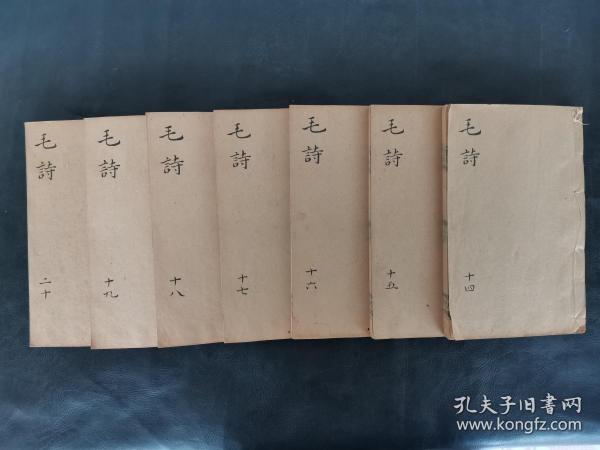 毛詩
十四
毛詩
十五
毛詩
十六
毛詩
十七
毛詩
十八
毛詩
十九
毛詩
二十
孔夫子旧書网
www.kongfz.com